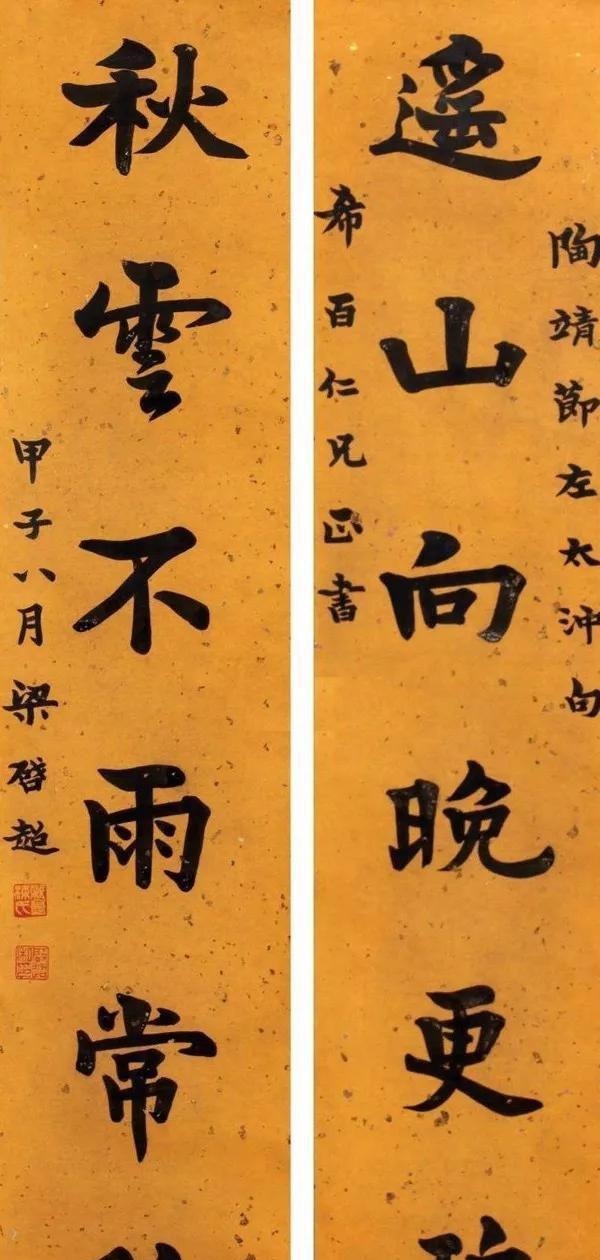 陶靖節左太沖句
遥山向晚更
希百仁兄正書
秋雲不雨常
甲子八月梁啓超